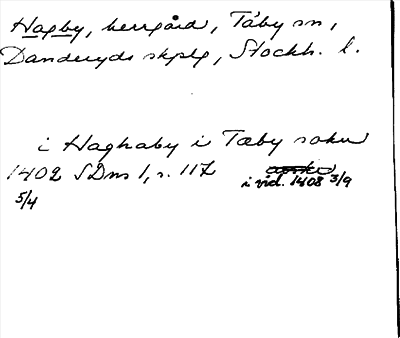 Hagby, herrgård, Täby sn,
Danderyds skplg, Stockh. l.
i Haghaby i Tæby sokn
1402 SDns 1, s. 117
5/4
i vid. 1408 3/9